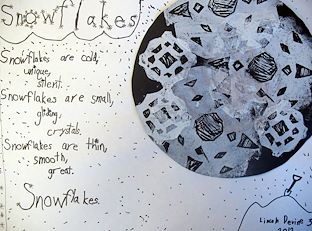 Snowflakes
Snowflakes are cold,
unique,
silent.
Snowflakes are small,
gliding,
crystals.
Snowflakes are thin,
smooth,
great.
Snowflakes.